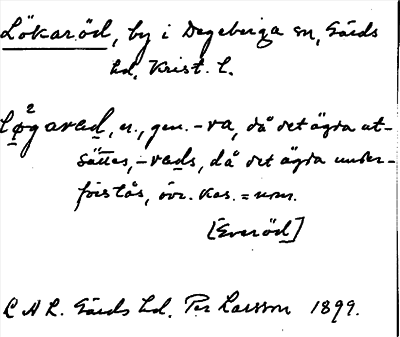 Lökaröd, by i Degeberga sn, Gärds
hd, Krist. l.
lø²garad, n., gen. -ra, då det ägda ut-
sättes, -rads, då det ägda under-
förstås, övr. kas. = nom.
[Everöd]
L A L. Gärds hd. Per Larsson 1899.